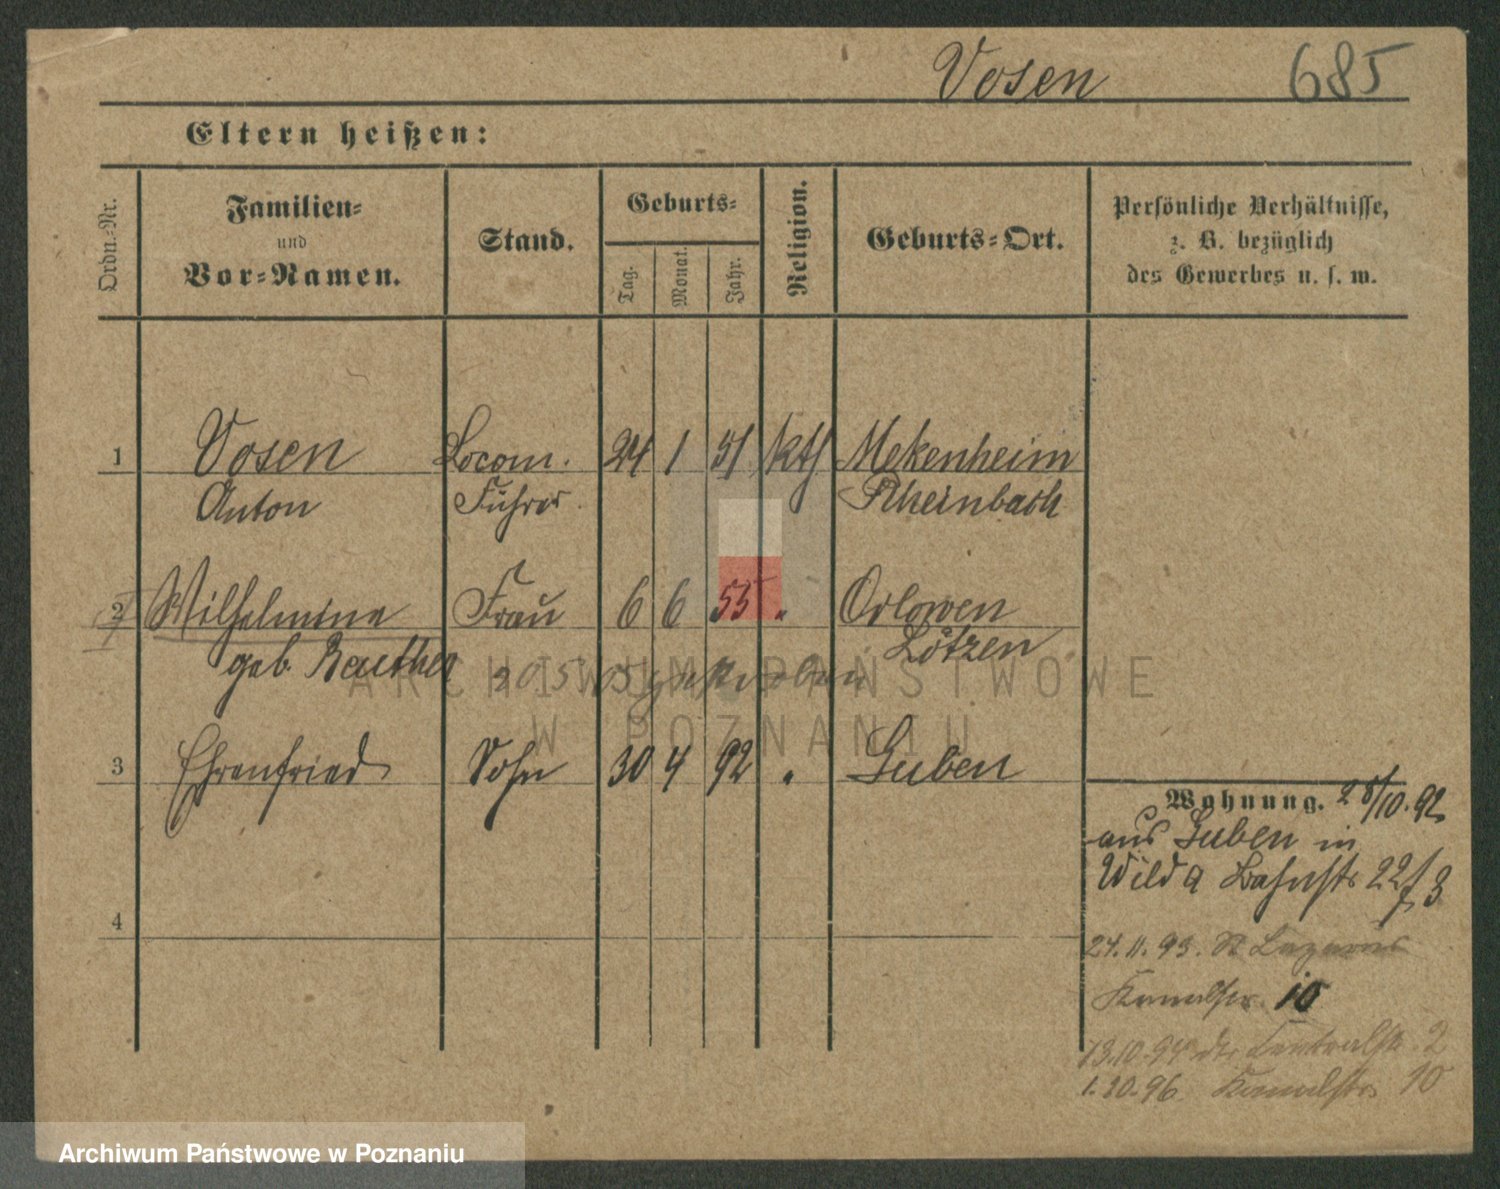 Vosen 685
Eltern heißen:
Ordn.-Nr.
Familien-
und
Vor-Namen.
Stand.
Geburts-
Tag.
Monat.
Jahr.
Religion.
Geburts-Ort.
Persönliche Verhältnisse,
z. B. bezüglich
des Gewerbes u. s. w.
1 Vosen Locom. 24 1 51 kth Mekenheim
Anton Führer Rheinbach
2 Wilhelmina Frau 6 6 55 " Orlowen
geb. Lötzen
gestorben
3 Ehrenfried Sohn 30 4 92 " Guben
Wohnung. 28/10.92
aus Guben in
Wilda Bahnstr 22 3
4
24.11.93. St Lazarus
Kanalstr. 10
13.10.94 Centralstr. 2
1.10.96 Kanalstr 10
ARCHIWUM PAŃSTWOWE
W POZNANIU
Archiwum Państwowe w Poznaniu